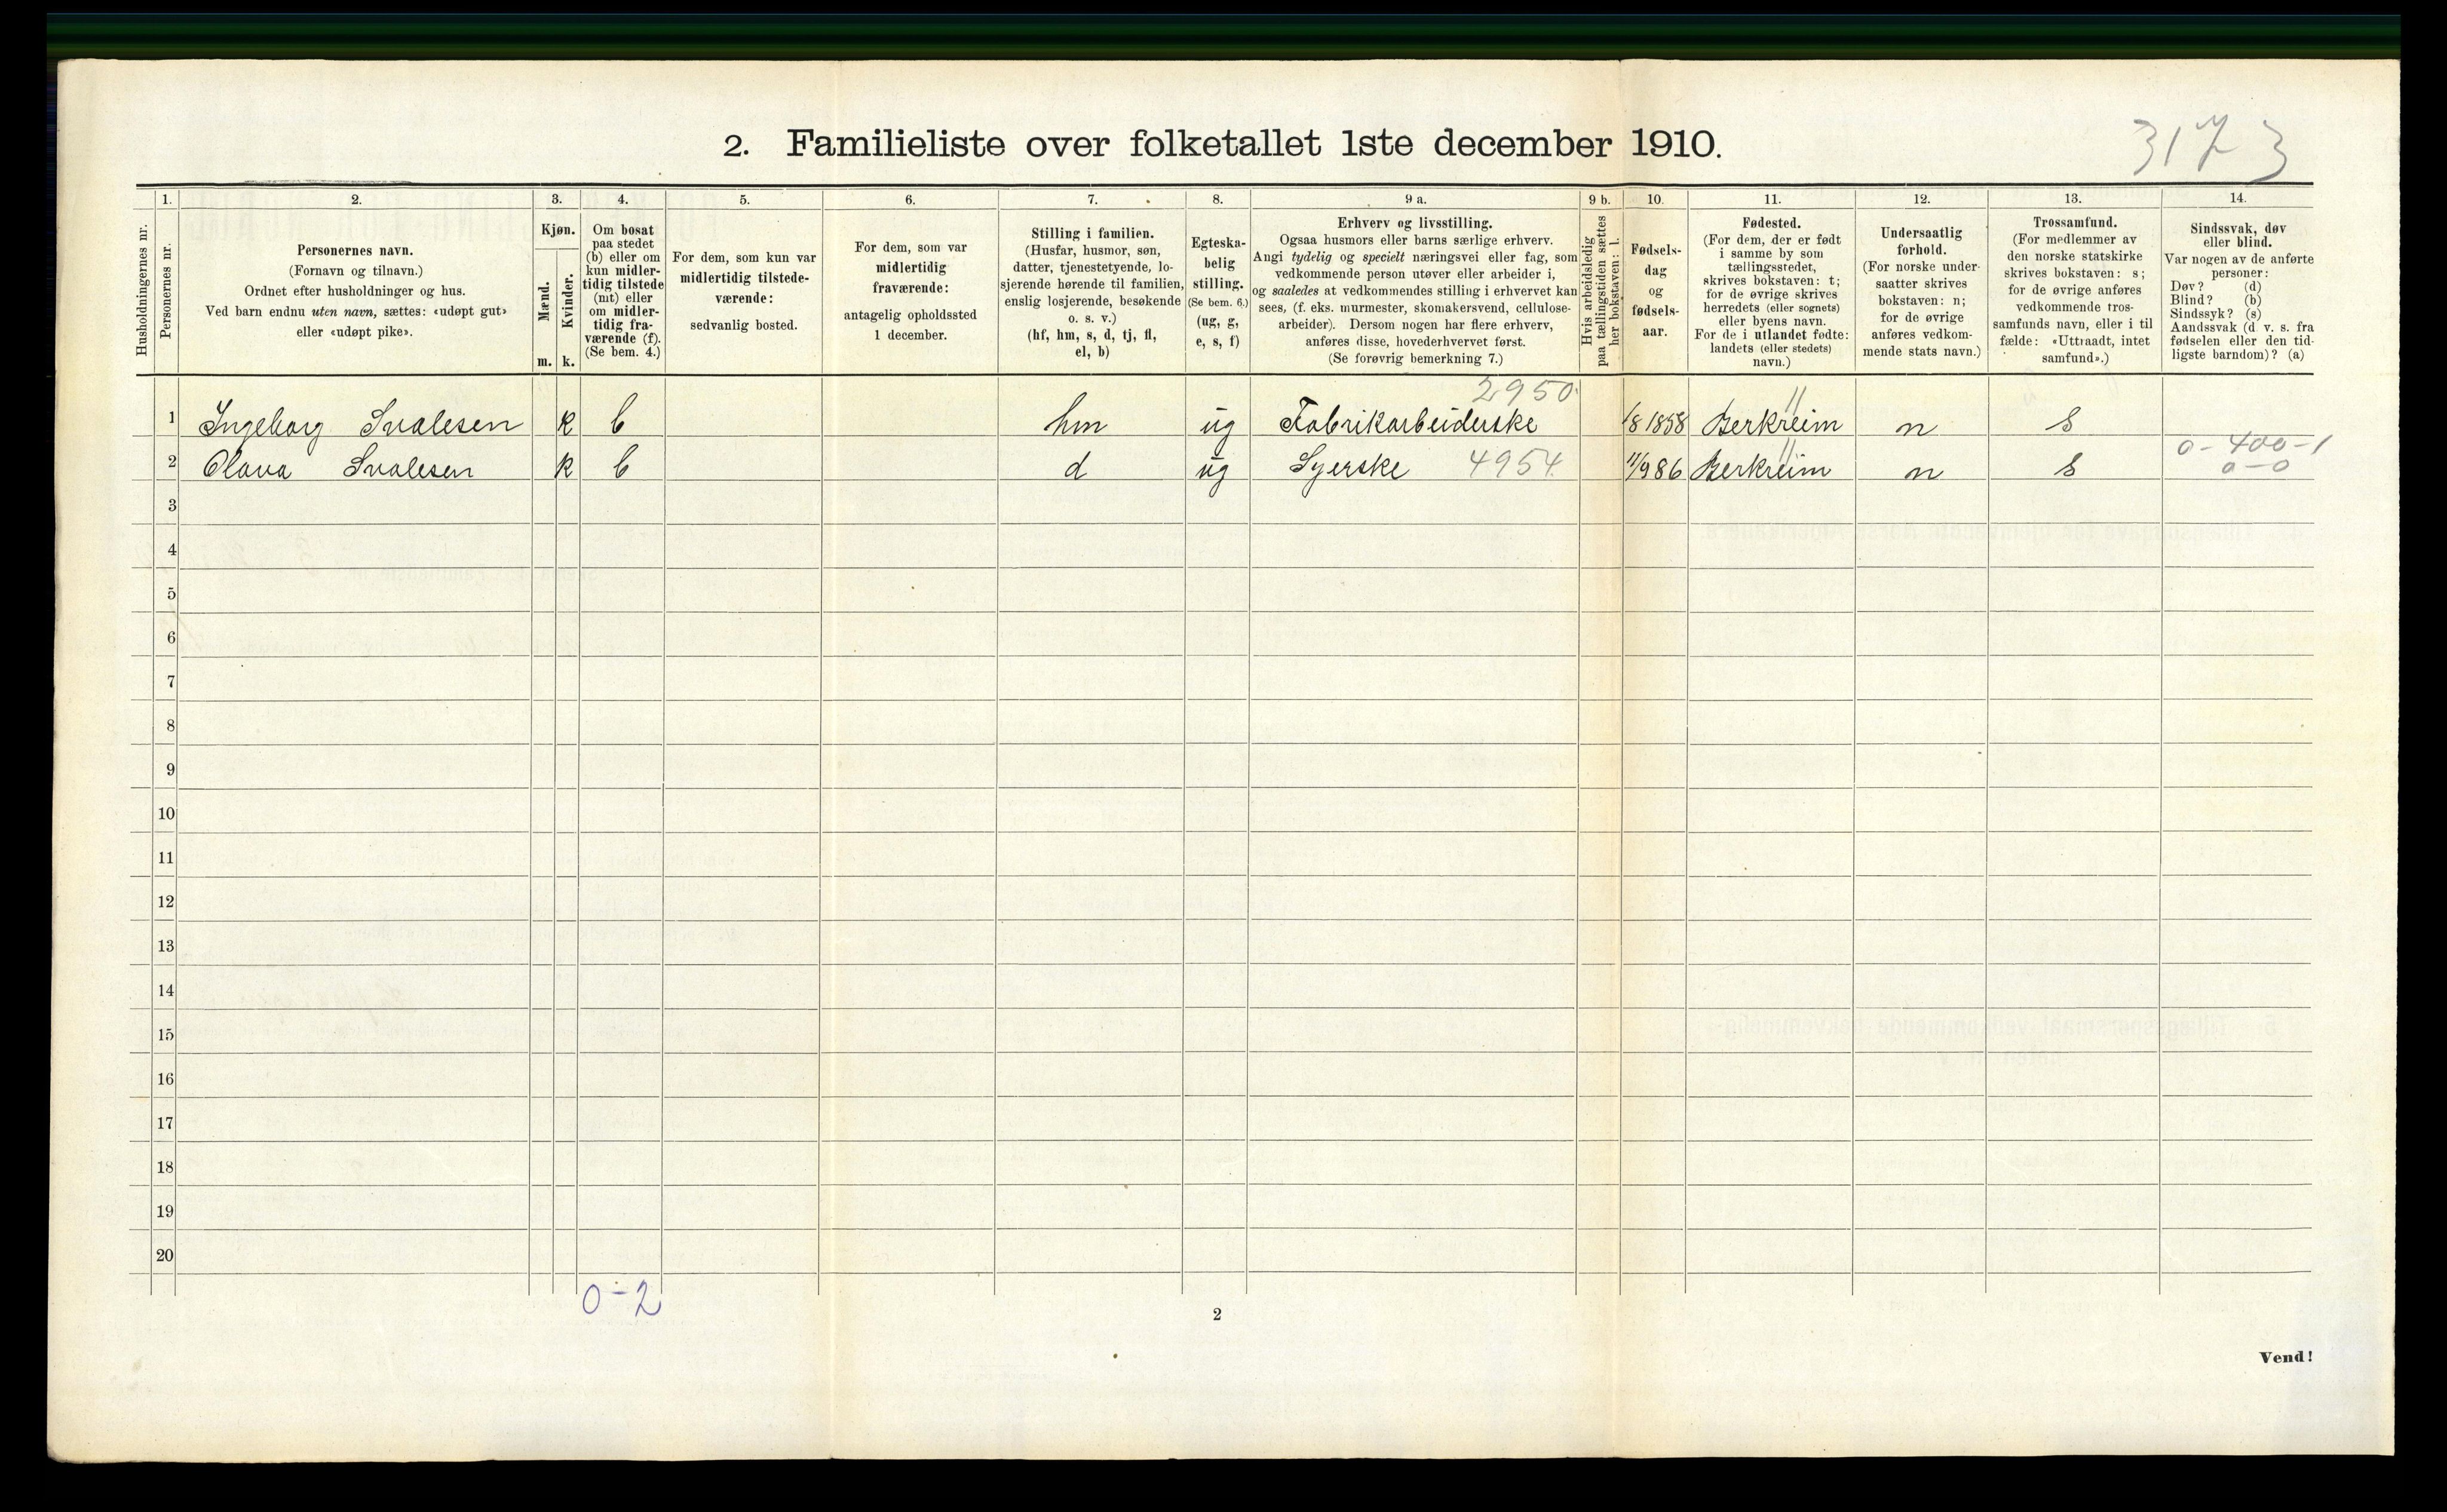 2. Familieliste over folketallet 1ste december 1910.
3173
Husholdningernes nr.
1.
Personernes nr.
2.
Personernes navn.
(Fornavn og tilnavn.)
Ordnet efter husholdninger og hus.
Ved barn endnu uten navn, sættes: «udøpt gut»
eller «udøpt pike».
3.
Kjøn.
Mænd.
m.
Kvinder.
k.
4.
Om bosat
paa stedet
(b) eller om
kun midler-
tidig tilstede
(mt) eller
om midler-
tidig fra-
værende (f).
(Se bem. 4.)
5.
For dem, som kun var
midlertidig tilstede-
værende:
sedvanlig bosted.
6.
For dem, som var
midlertidig
fraværende:
antagelig opholdssted
1 december.
7.
Stilling i familien.
(Husfar, husmor, søn,
datter, tjenestetyende, lo-
sjerende hørende til familien,
enslig losjerende, besøkende
o. s. v.)
(hf, hm, s, d, tj, fl,
el, b)
8.
Egteska-
belig
stilling.
(Se bem. 6.)
(ug, g,
e, s, f)
9 a.
Erhverv og livsstilling.
Ogsaa husmors eller barns særlige erhverv.
Angi tydelig og specielt næringsvei eller fag, som
vedkommende person utøver eller arbeider i,
og saaledes at vedkommendes stilling i erhvervet kan
sees, (f. eks. murmester, skomakersvend, cellulose-
arbeider). Dersom nogen har flere erhverv,
anføres disse, hovederhvervet først.
(Se forøvrig bemerkning 7.)
9 b.
Hvis arbeidsledig
paa tællingstiden sættes
her bokstaven: l.
10.
Fødsels-
dag
og
fødsels-
aar.
11.
Fødested.
(For dem, der er født
i samme by som
tællingsstedet,
skrives bokstaven: t;
for de øvrige skrives
herredets (eller sognets)
eller byens navn.
For de i utlandet fødte:
landets (eller stedets)
navn.)
12.
Undersaatlig
forhold.
(For norske under-
saatter skrives
bokstaven: n;
for de øvrige
anføres vedkom-
mende stats navn.)
13.
Trossamfund.
(For medlemmer av
den norske statskirke
skrives bokstaven: s;
for de øvrige anføres
vedkommende tros-
samfunds navn, eller i til
fælde: «Uttraadt, intet
samfund».)
14.
Sindssvak, døv
eller blind.
Var nogen av de anførte
personer:
Døv? (d)
Blind? (b)
Sindssyk? (s)
Aandssvak (d. v. s. fra
fødselen eller den tid-
ligste barndom)? (a)
2950
1 Ingeborg Svalesen k b hm ug Fabrikarbeiderske 1/8 1858 Berkreim n s
0-400-1
2 Olava Svalesen k b d ug Syerske 4954 11/9 86 Berkreim n s 0-0
3
4
5
6
7
8
9
10
11
12
13
14
15
16
17
18
19
20
0-2
2
Vend!